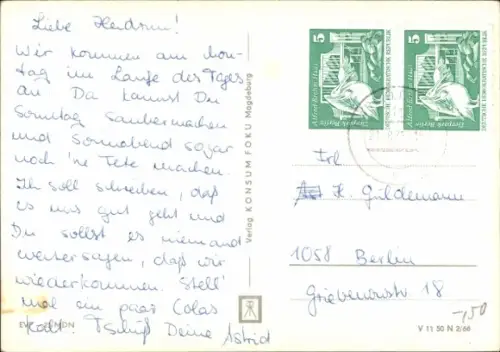 Liebe Heidrun!
Wir kommen am Mon-
tag im Laufe des Tages
an. Da kannst Du
Sonntag saubermachen
und Sonnabend sogar
noch 'ne Fete machen.
Ich soll schreiben, daß
es uns gut geht und
Du sollst es niemand
weitersagen, daß wir
wiederkommen. Stell'
mal ein paar Colas
kalt! Tschüß Deine Astrid
Verlag KONSUM FOKU Magdeburg
5
5
DEUTSCHE DEMOKRATISCHE REPUBLIK
DEUTSCHE DEMOKRATISCHE REPUBLIK
Tierpark Berlin
Tierpark Berlin
Alfred-Brehm-Haus
Alfred-Brehm-Haus
Frl
H. Güldemann
1058 Berlin
Griebenowstr 18
-,50
V 11 50 N 2/66